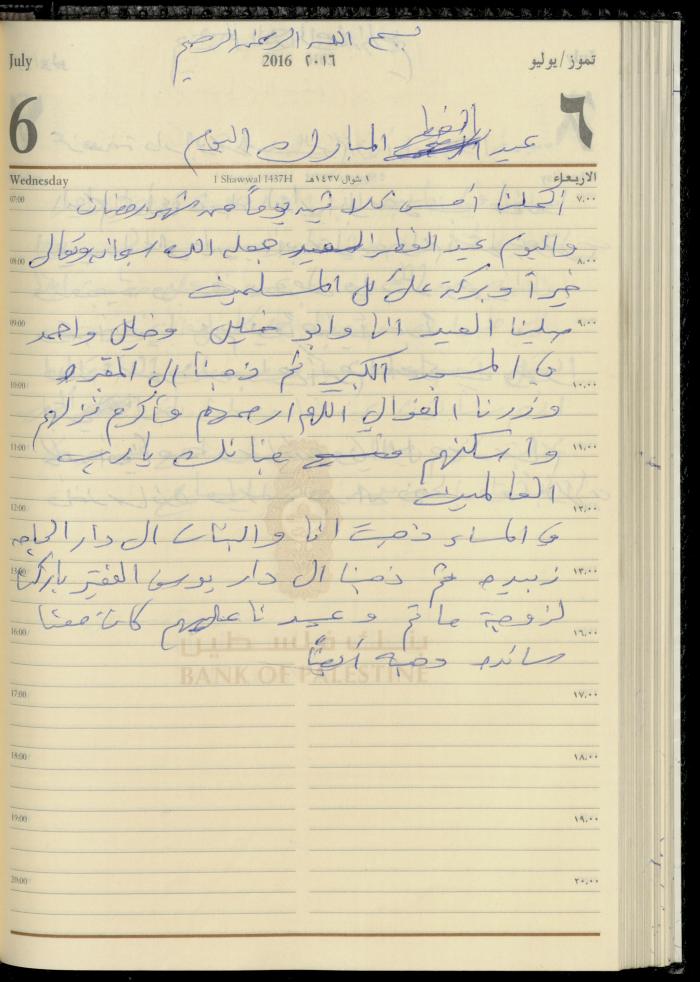 بسم الله الرحمن الرحيم
July 2016 ٢٠١٦ تموز/يوليو
6 ٦
عيد الفطر المبارك اليوم
Wednesday 1 Shawwal 1437H ١ شوال ١٤٣٧هـ الاربعاء
07:00 اكملنا أمس ثلاثين يوماً من شهر رمضان ٧,٠٠
واليوم عيد الفطر السعيد جعله الله سبحانه وتعالى
08:00 ٨,٠٠
خيراً وبركة على كل المسلمين
09:00 صلينا العيد انا وابو خليل وخليل واحمد ٩,٠٠
في المسجد الكبير ثم ذهبنا الى المقبره
10:00 ١٠,٠٠
وزرنا الغوالي اللهم ارحمهم وأكرم نزلهم
11:00 واسكنهم جنانك يا رب ١١,٠٠
العالمين
12:00 ١٢,٠٠
في المساء ذهبت انا والبنات الى دار الحاجه
13:00 زبيده ثم ذهبنا الى دار يوسف الفقير باركنا ١٣,٠٠
لزوجة حاتم وعيدنا عليهم كانت معنا
16:00 ١٦,٠٠
بنك فلسطين
سائده وهبه أيضاً
BANK OF PALESTINE
17:00 ١٧,٠٠
18:00 ١٨,٠٠
19:00 ١٩,٠٠
20:00 ٢٠,٠٠